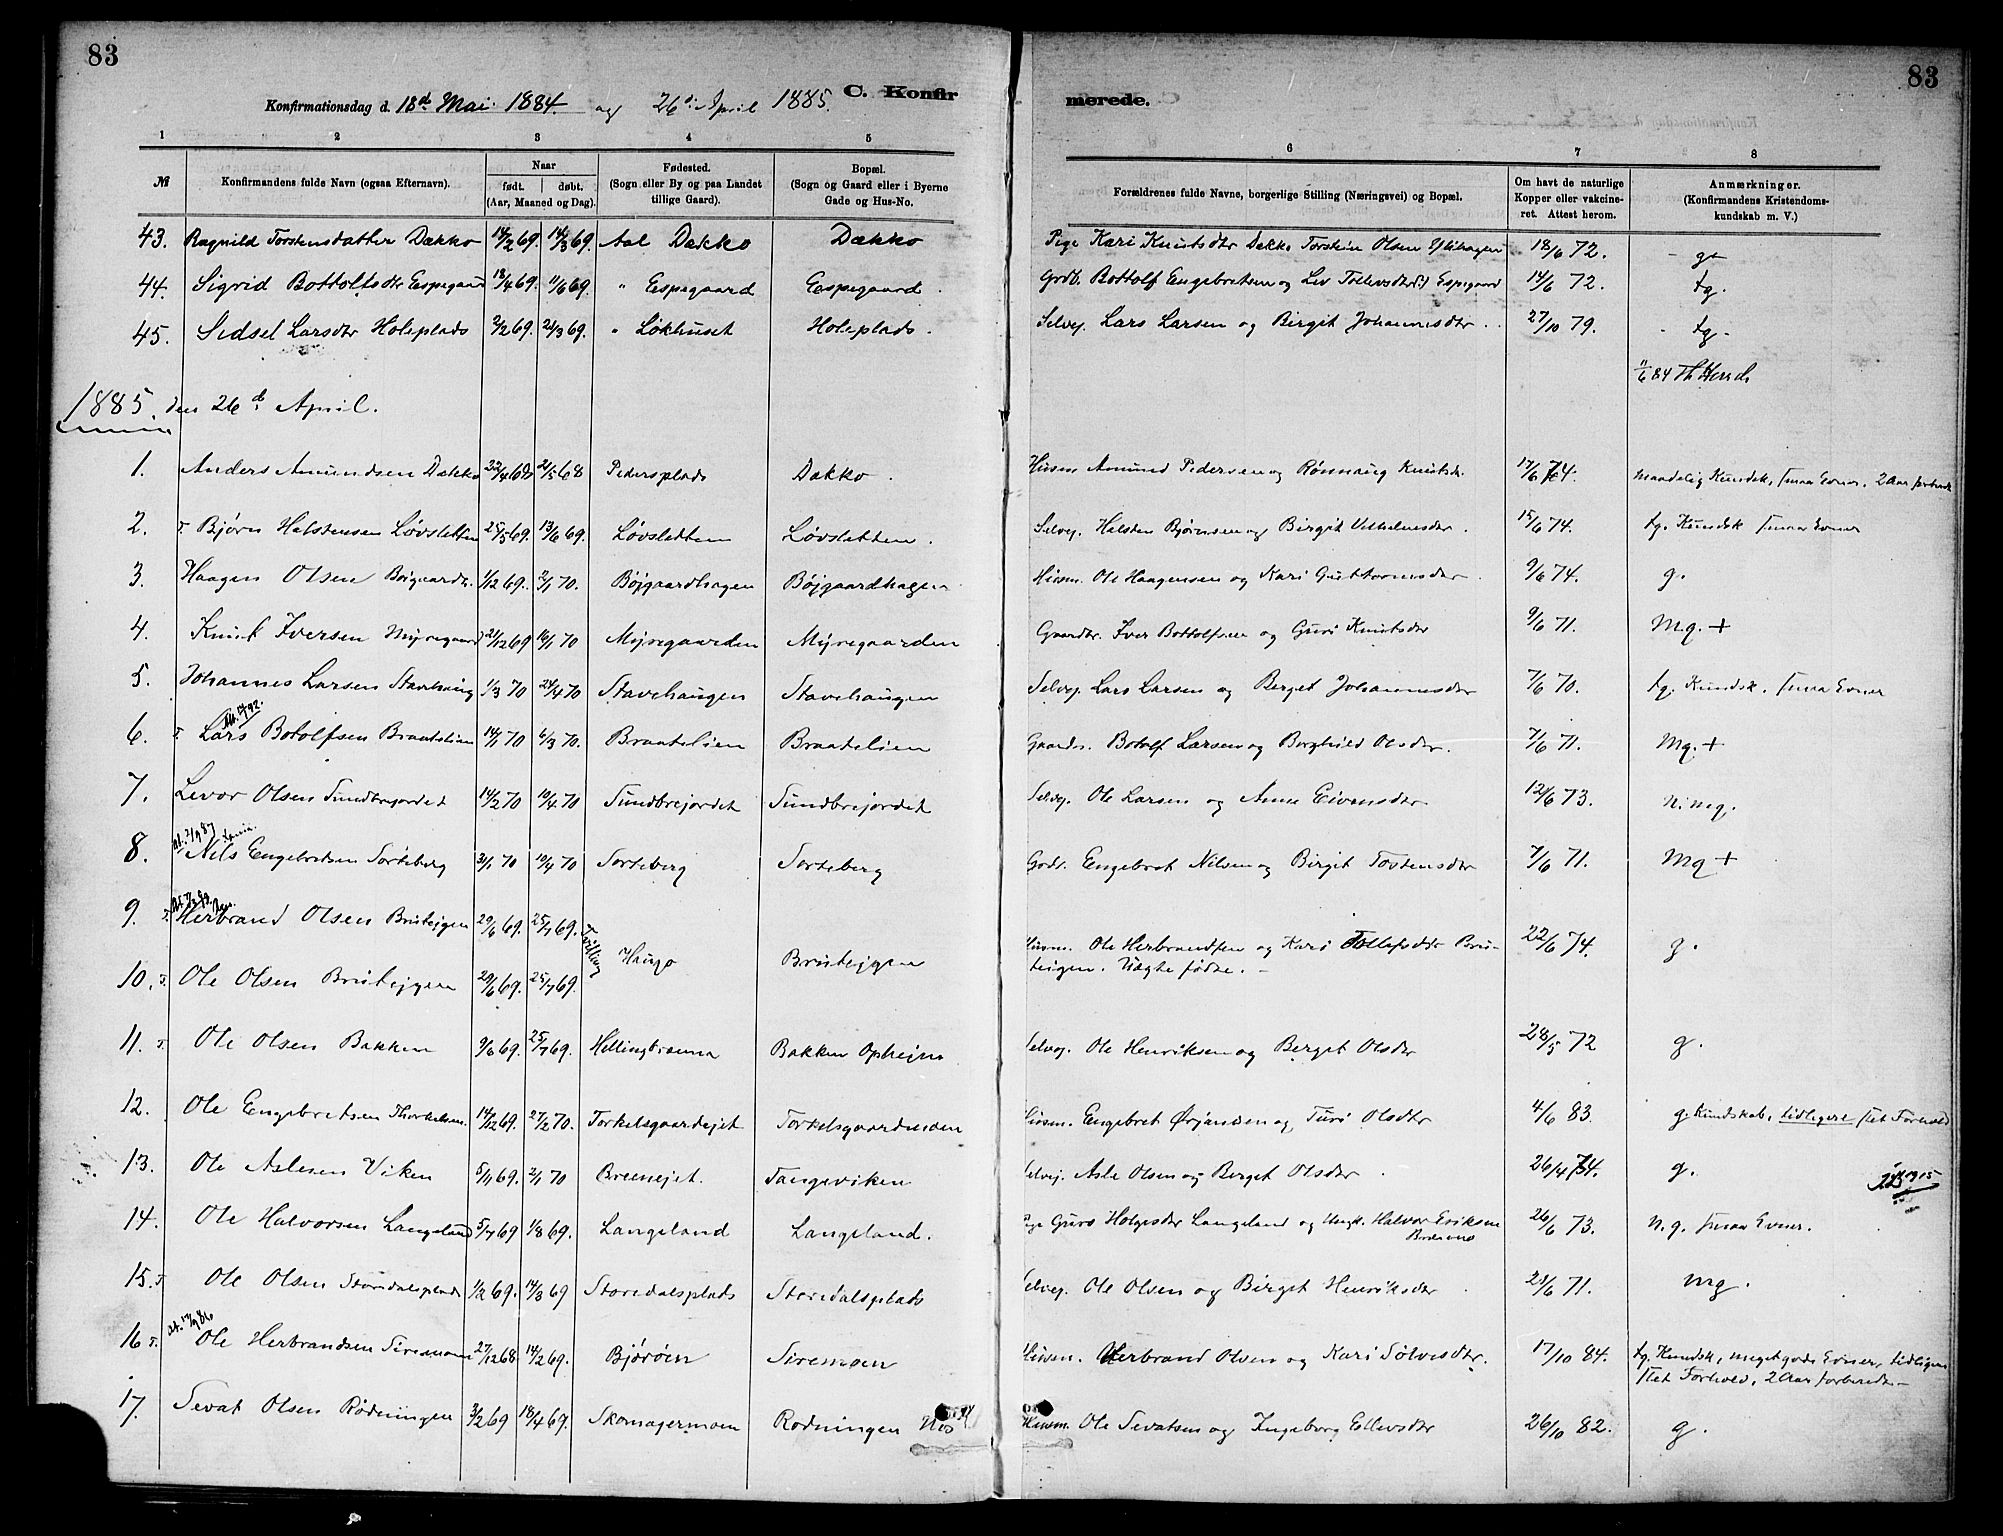 83
83
Konfirmationsdag d. 18d Mai 1884. og 26d April 1885. C. Konfirmerede.
1 2 3 4 5 6 7 8
№ Konfirmandens fulde Navn (ogsaa Efternavn). Naar født. døbt. (Aar, Maaned og Dag). Fødested. (Sogn eller By og paa Landet tillige Gaard). Bopæl. (Sogn og Gaard eller i Byerne Gade og Hus-No. Forældrenes fulde Navne, borgerlige Stilling (Næringsvei) og Bopæl. Om havt de naturlige Kopper eller vakcineret. Attest herom. Anmærkninger. (Konfirmandens Kristendomskundskab m. V.)
43. Ragnild Torstensdatter Dækko 14/2 69. 14/3 69. Aal Dækko Dækko Pige Kari Knutsdtr Dækko Torstein Olsen 18/6 72. g
44. Sigrid Bottolfsdtr Espegaard 18/4 69. 11/6 69. " Espegaard Espegaard. Grdb. Bottolf Engebretsen og Liv Espegaard 14/6 72. tg.
45. Sidsel Larsdtr Holeplads 2/2 69. 21/3 69. " Løkhuset Holeplads. Selvej. Lars Larsen og Birgit Johannesdtr. 27/10 79. tg.
11/6 84
1885. den 26d April.
1. Anders Amundsen Dækko 22/4 68 21/5 68 Pedersplads Dækko. Husm Amund Pedersen og Rønnaug Knutsdr. 17/6 74. Maadelig Kundsk, smaa Evner, 2 Aar forberedt
2. T. Bjørn Halstensen Løvsletten 25/5 69. 13/6 69. Løvsletten Løvsletten. Selvej. Halsten Bjørnsen og Birgit Vilhelmsdtr. 15/6 74. tg. Kundsk smaa Evner
3. Haagen Olsen Bøigaardh. 1/12 69. 2/1 70. Bøjgaardhagen Bøjgaardhagen Husm. Ole Haagensen og Kari Guttormsdtr 9/6 74. g.
4. Knut Iversen Myregaard 21/12 69 16/1 70 Myregaarden Myregaarden Gaardbr. Iver Bottolfsen og Guri Knutsdtr 9/6 71. Mg. +
5. Johannes Larsen Stavehaug 1/3 70 24/4 70 Stavehaugen Stavehaugen Selvej. Lars Larsen og Berget Johannesdtr 7/6 70. tg. Kundsk. smaa Evner
6. T. Lars Botolfsen Braatelien 14/1 70 6/3 70. Braatelien Braatelien Gaardb. Botolf Larsen og Borghild Olsdtr. 7/6 71. Mg. +
7. Levor Olsen Sundbrejordet 14/2 70 10/4 70 Sundbrejordet Sundbrejordet Selvej. Ole Larsen og Anne Eivensdtr 12/6 73. N. mg.
8. Nils Engebretsen Sørteberg 31/1 70 10/4 70 Sorteberg Sorteberg Grdb. Engebret Nilsen og Birgit Tostensdtr 7/6 71. Mg +
9. T. Herbrand Olsen Brutejgen 29/6 69. 25/7 69. Tvilling Haugo Brutejgen Husm. Ole Herbrandsen og Kari Tollefsdtr Bruteigen. Uægte fødte. 22/6 74. g.
10. T. Ole Olsen Brutejgen 29/6 69. 25/7 69.
11. T. Ole Olsen Bakken 9/6 69. 25/7 69. Hellingbrænna Bakken Opheim Selvej. Ole Henriksen og Berget Olsdtr 28/5 72 g.
12. Ole Engebretsen Thorkelsen. 14/12 69. 27/2 70. Torkelsgaardejet Torkelsgaardmoen Husm. Engebret Ørjansen og Turi Olsdtr 4/6 83 g. Kundskab, tidligere slet Forhold
13. Ole Aslesen Viken 5/11 69. 2/1 70 Breiejet. Tangeviken Selvej. Asle Olsen og Berget Olsdtr 26/4 74. g. 1915
14. Ole Halvorsen Langeland 5/7 69 1/8 69. Langeland Langeland. Pige Guro Holgersdtr Langeland og Ungk. Halvor Eriksen 26/6 73. N. g. smaa Evner.
15. T. Ole Olsen Storedalsplads 1/2 69. 14/3 69 Storedalsplads Storedalsplads Selvej. Ole Olsen og Birget Henriksdtr 21/6 71. mg.
16 T. Ole Herbrandsen Siremoen 27/12 68 14/2 69. Bjørøen Siremoen Husm. Herbrand Olsen og Kari Sølvesdtr. 17/10 84. tg. Kundsk, meget gode Evner, tidligere slet Forhold, 2 Aar forberedt
17. Sevat Olsen Rødningen 3/2 69 18/4 69. Skomagermoen Rodningen Nes Husm. Ole Sevatsen og Ingeborg Ellevsdtr 26/10 82. g.